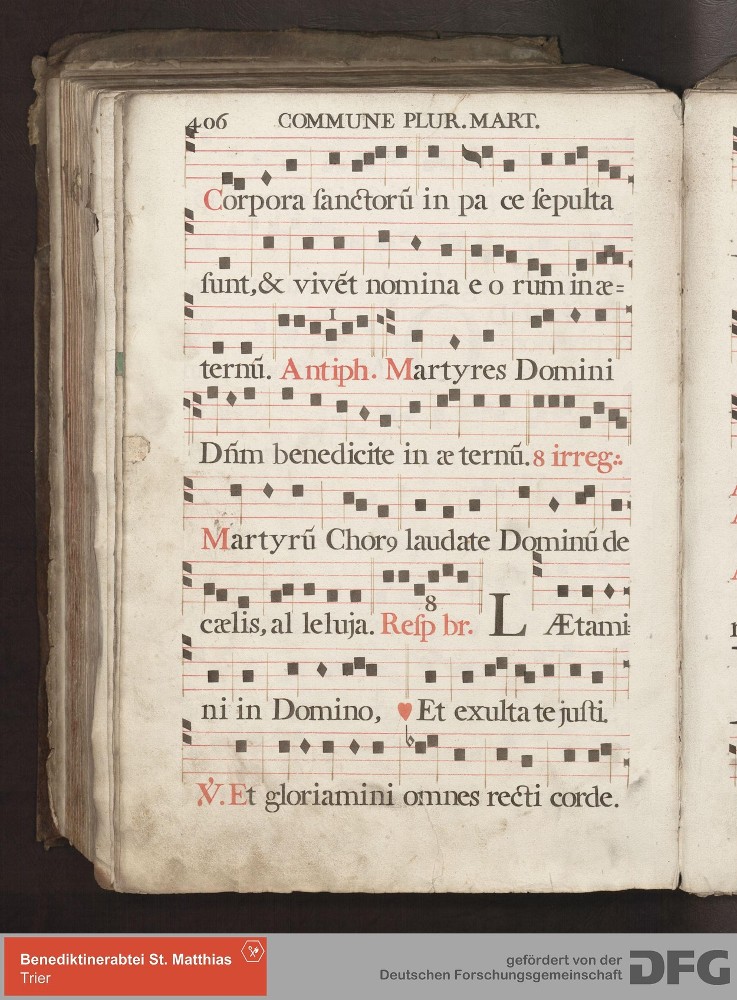 406 COMMUNE PLUR. MART.
Corpora ſanctorũ in pa ce ſepulta
ſunt, & vivẽt nomina e o rum in æ=
1
ternũ. Antiph. Martyres Domini
Dñm benedicite in æ ternũ. 8 irreg:.
Martyrũ Chorꝰ laudate Dominũ de
8
cælis, al leluja. Reſp br. LÆtami
ni in Domino, ♥ Et exulta te juſti.
℣. Et gloriamini omnes recti corde.
Benediktinerabtei St. Matthias
Trier
gefördert von der
Deutschen Forschungsgemeinschaft
DFG